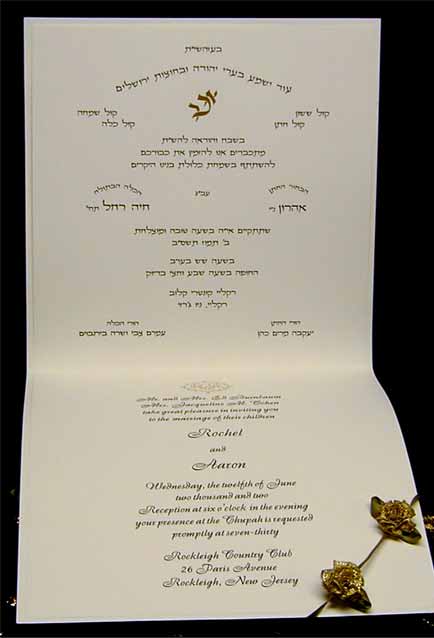 בעזהשי״ת
עוד ישמע בערי יהודה ובחוצות ירושלים
קול ששון
קול חתן
קול שמחה
קול כלה
בשבח והודאה להשי״ת
מתכבדים אנו להזמין את כבודכם
להשתתף בשמחת כלולת בנינו היקרים
הבחור החתן
אהרון ני״ו
עב״ג
הכלה הבתולה
חיה רחל תחי׳
שתתקיים אי״ה בשעה טובה ומוצלחת
ב׳ תמוז תשס״ב
בשעה שש בערב
החופה בשעה שבע וחצי בדיוק
רקליי קונטרי קלוב
רקליי, ניו ג׳רזי
הורי החתן
יעקבה מרים כהן
הורי הכלה
עמרם צבי ושרה בירנבוים
Mr. and Mrs. Birnbaum
Mrs. Jacqueline M. Cohen
take great pleasure in inviting you
to the marriage of their children
Rochel
and
Aaron
Wednesday, the twelfth of June
two thousand and two
Reception at six o'clock in the evening
your presence at the Chupah is requested
promptly at seven-thirty
Rockleigh Country Club
26 Paris Avenue
Rockleigh, New Jersey